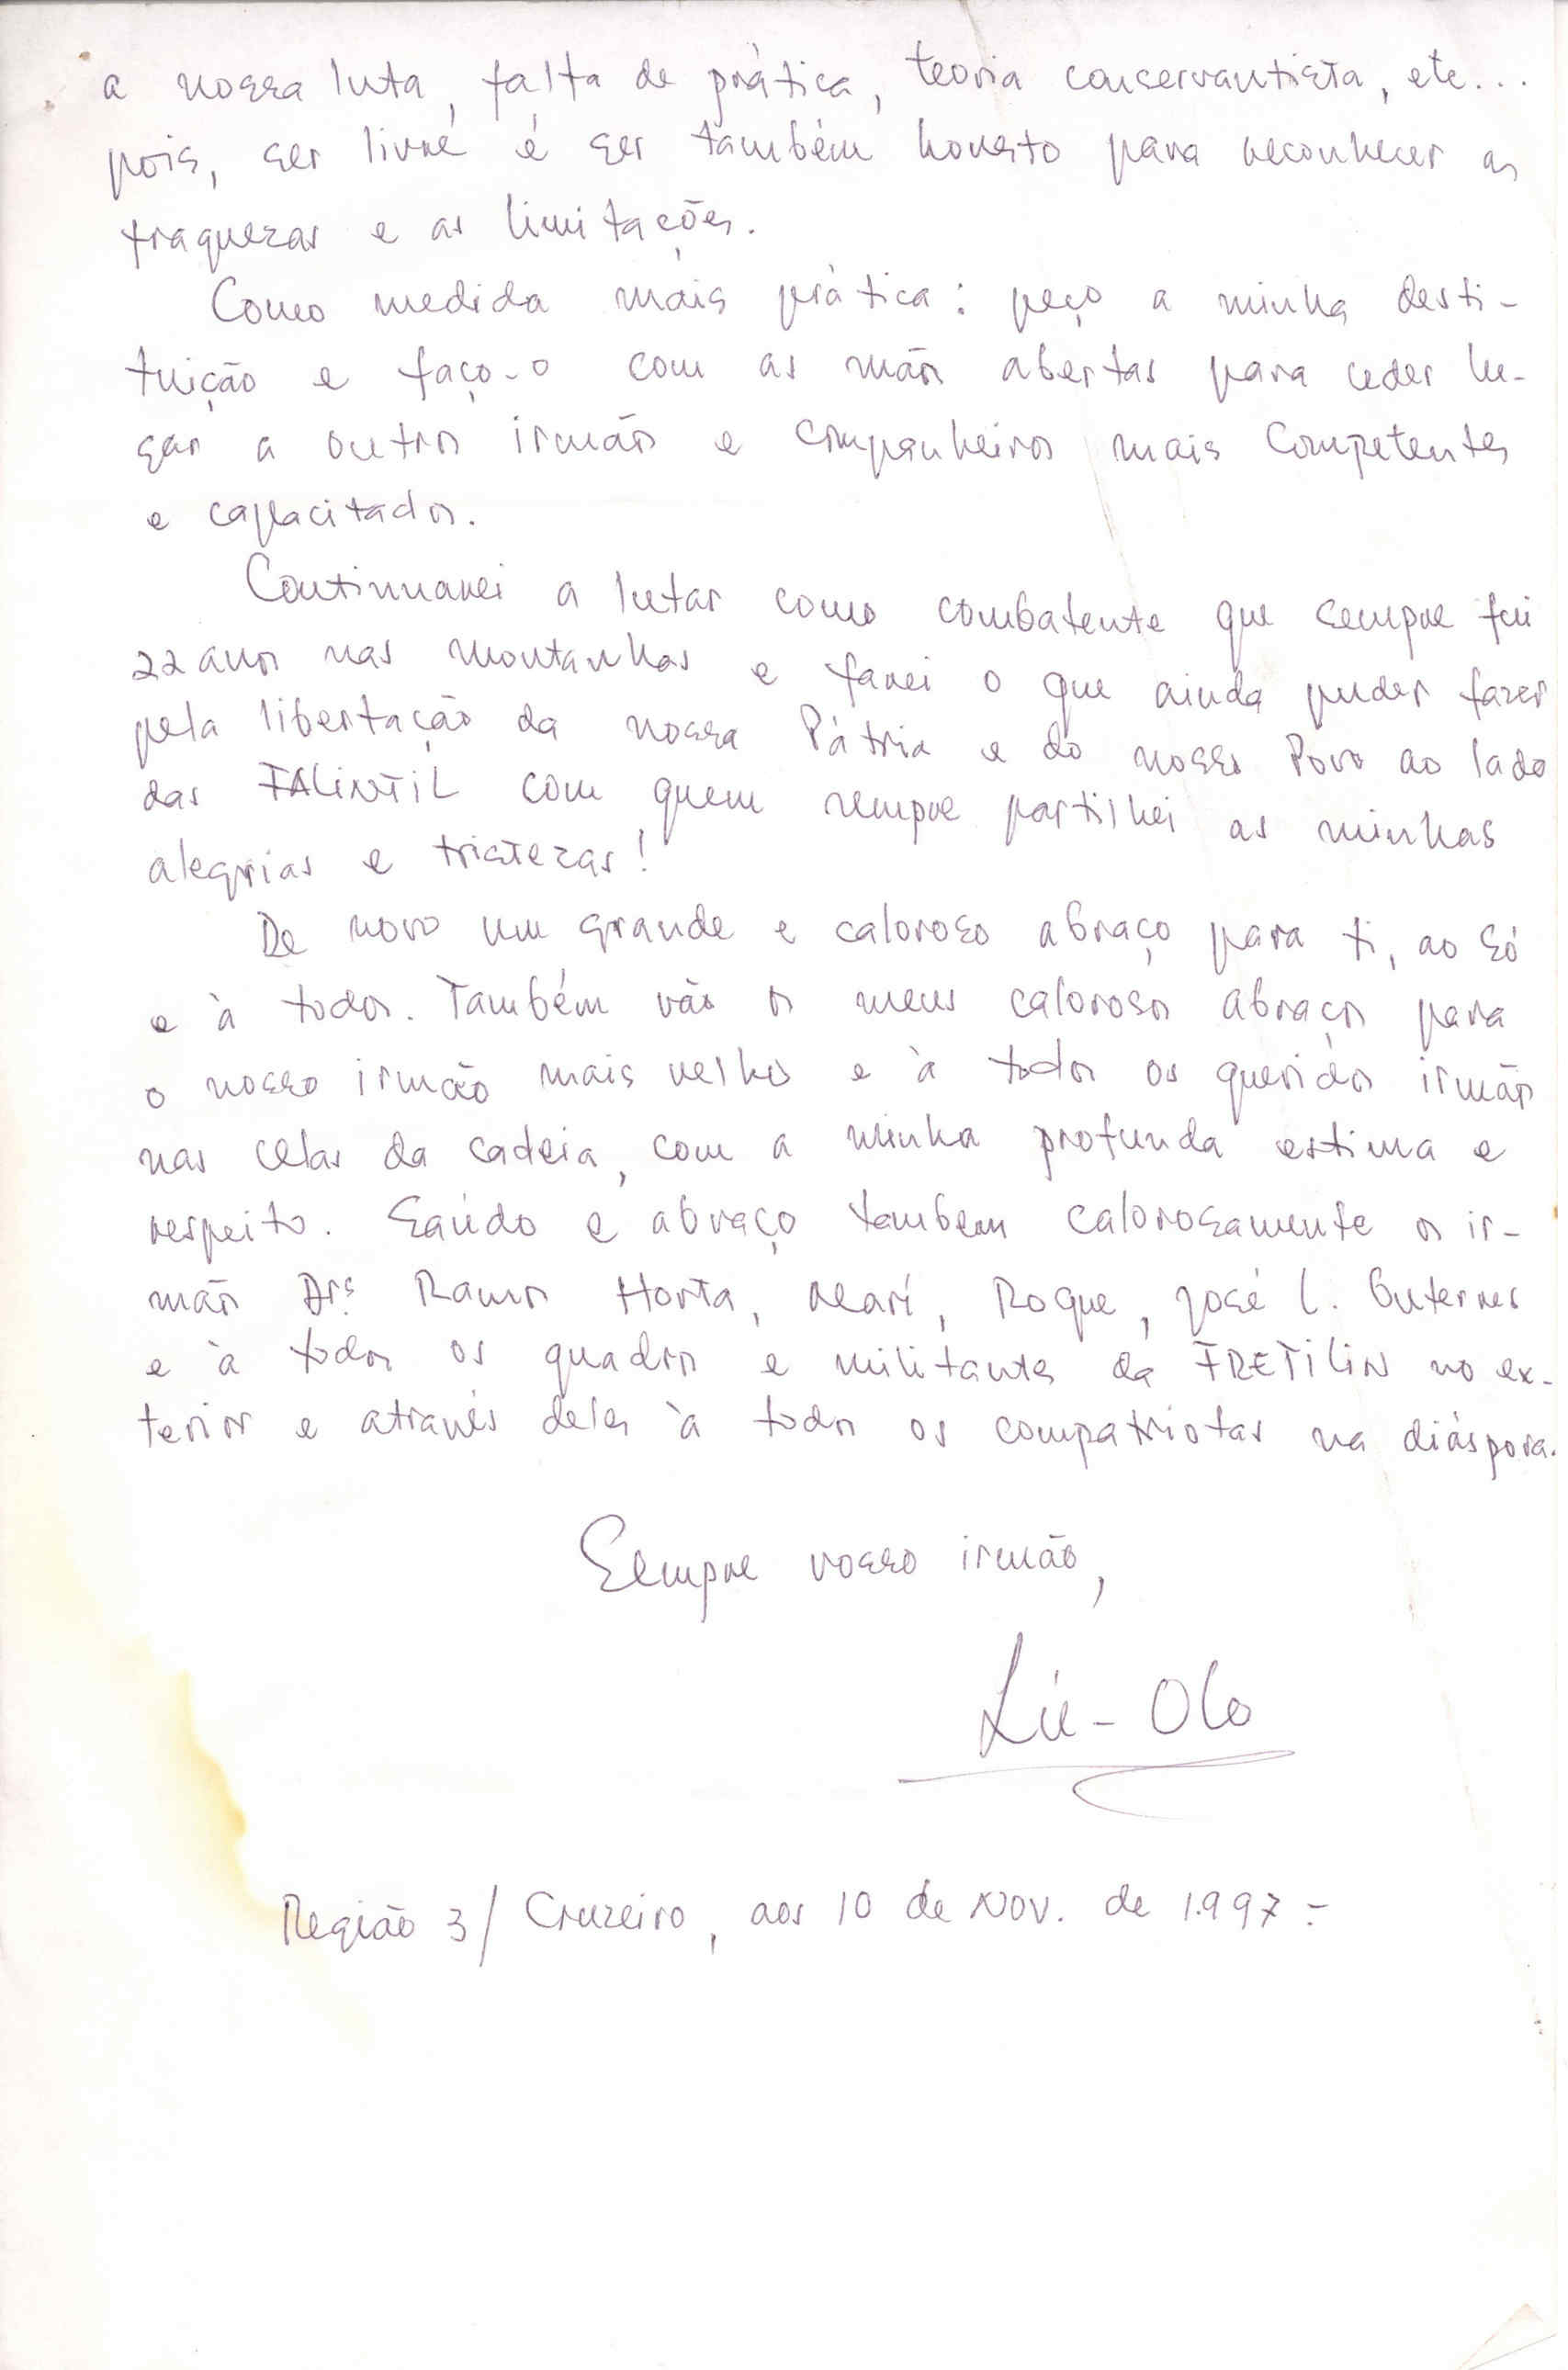 a nossa luta, falta de prática, teoria conservantista, etc...
pois, ser livre é ser também honesto para reconhecer as
fraquezas e as limitações.
Como medida mais prática: peço a minha desti-
tuição e faço-o com as mãos abertas para ceder lu-
gar a outros irmãos e companheiros mais competentes
e capacitados.
Continuarei a lutar como combatente que sempre fui
22 anos nas montanhas e farei o que ainda puder fazer
pela libertação da nossa Pátria e do nosso Povo ao lado
das FALINTIL com quem sempre partilhei as minhas
alegrias e tristezas!
De novo um grande e caloroso abraço para ti, ao Só
e à todos. Também vão os meus calorosos abraços para
o nosso irmão mais velho e à todos os queridos irmãos
nas celas da cadeia, com a minha profunda estima e
respeito. Saúdo e abraço tambem calorosamente os ir-
mãos Drs. Ramos Horta, Marí, Roque, José L. Guterres
e à todos os quadros e militantes da FRETILIN no ex-
terior e através deles à todos os compatriotas na diáspora.
Sempre vosso irmão,
Lú-Olo
Região 3/ Cruzeiro, aos 10 de Nov. de 1.997.-